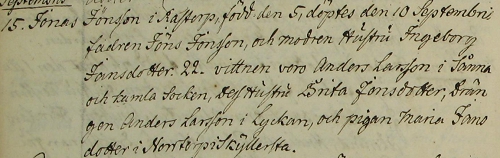 Septembris
15. Jonas Jönson i Rastorp, född den 5, döptes den 10 Septembris
fadren Jöns Jonson, och modren Hustru Ingeborg
Jansdotter. 22. vittnen voro Anders Larson i Sånna
och Hamla Socken, dess Hustru Brita Jonsdotter, drän
gen Anders Larson i Lyckan, och pigan Maria Jans
dotter i Norrtorp i Skyllersta.